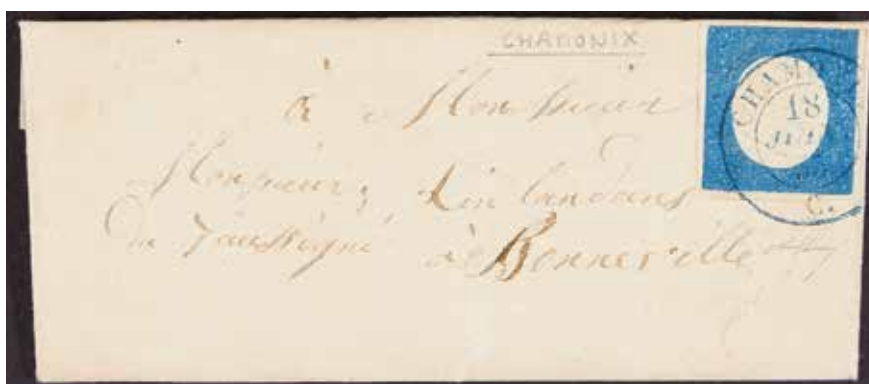 CHAMONIX
CHAM
18
JUI
C.
à Monsieur
Monsieur, L'intendant
de Faussigné
à Bonneville